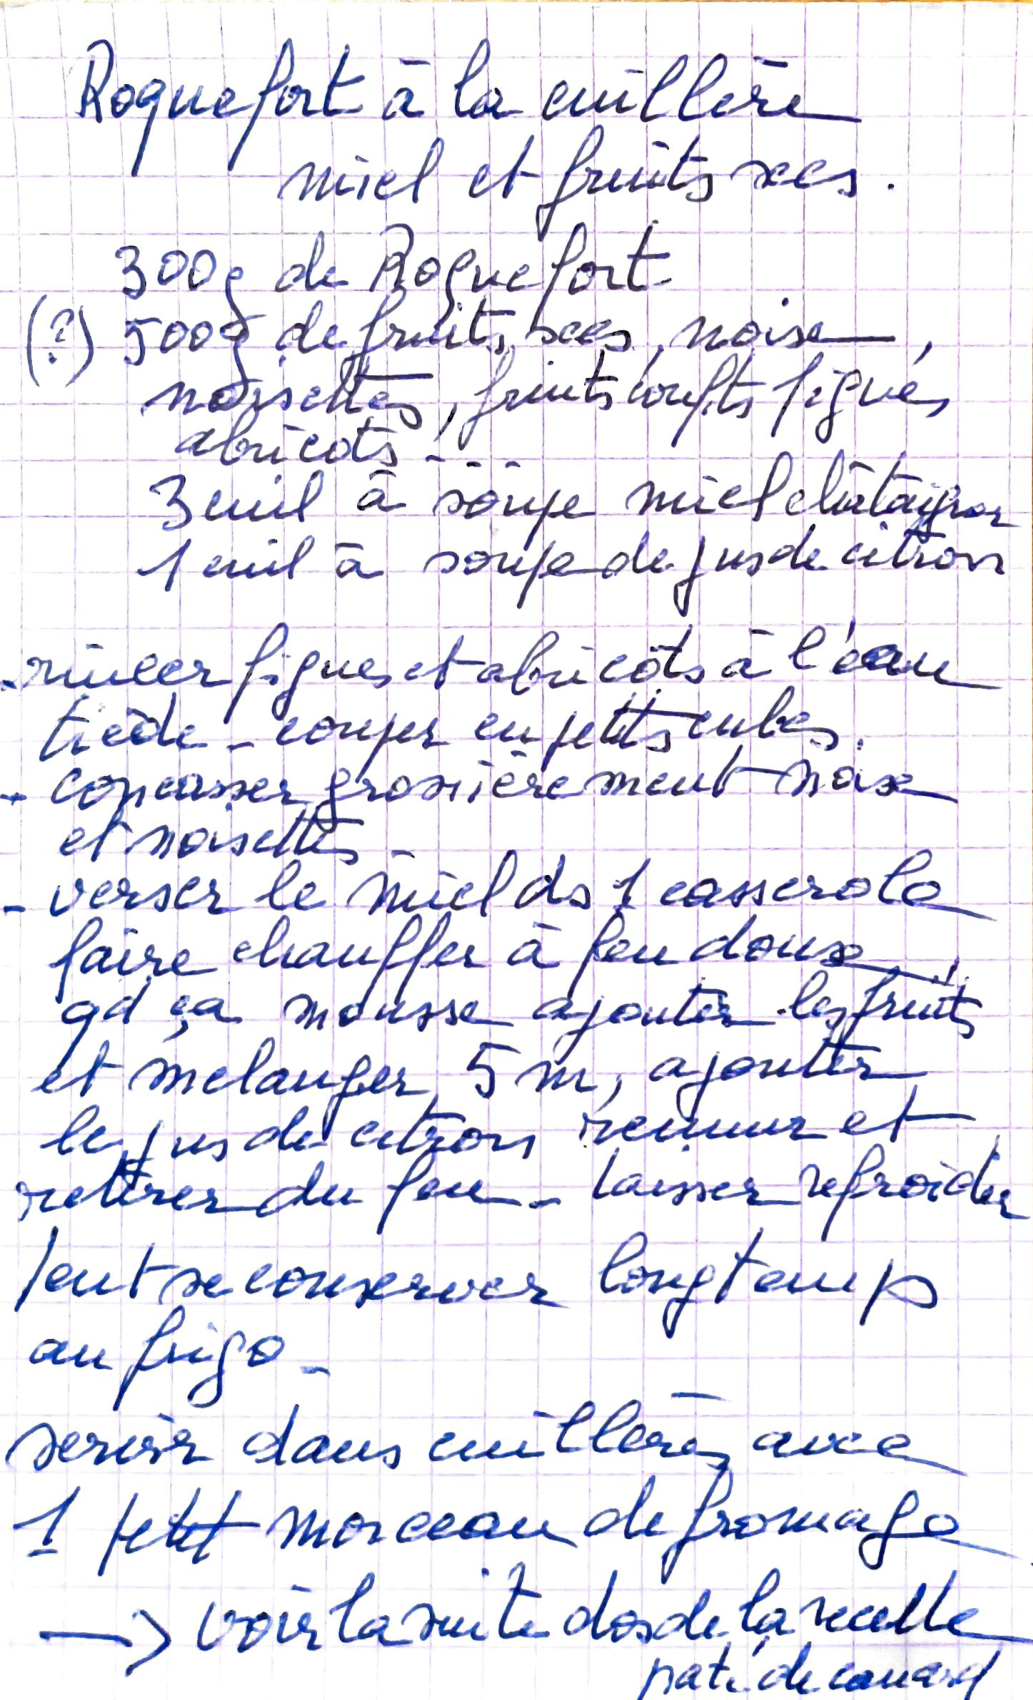 Roquefort à la cuillère
miel et fruits secs.
300g de Roquefort
(?) 500g de fruits secs, noix,
noisettes, fruits confits figues,
abricots - - -
3 cuil à soupe miel châtaignier
1 cuil à soupe de jus de citron
- rincer figues et abricots à l'eau
tiède - couper en petits cubes.
- concasser grossièrement noix
et noisettes -
- verser le miel ds 1 casserole
faire chauffer à feu doux,
qd ça mousse ajouter les fruits
et mélanger 5 m, ajouter
le jus de citron remuer et
retirer du feu - laisser refroidir
Peut se conserver longtemps
au frigo -
servir dans cuillères avec
1 petit morceau de fromage
—> voir la suite dos de la recette
paté de canard